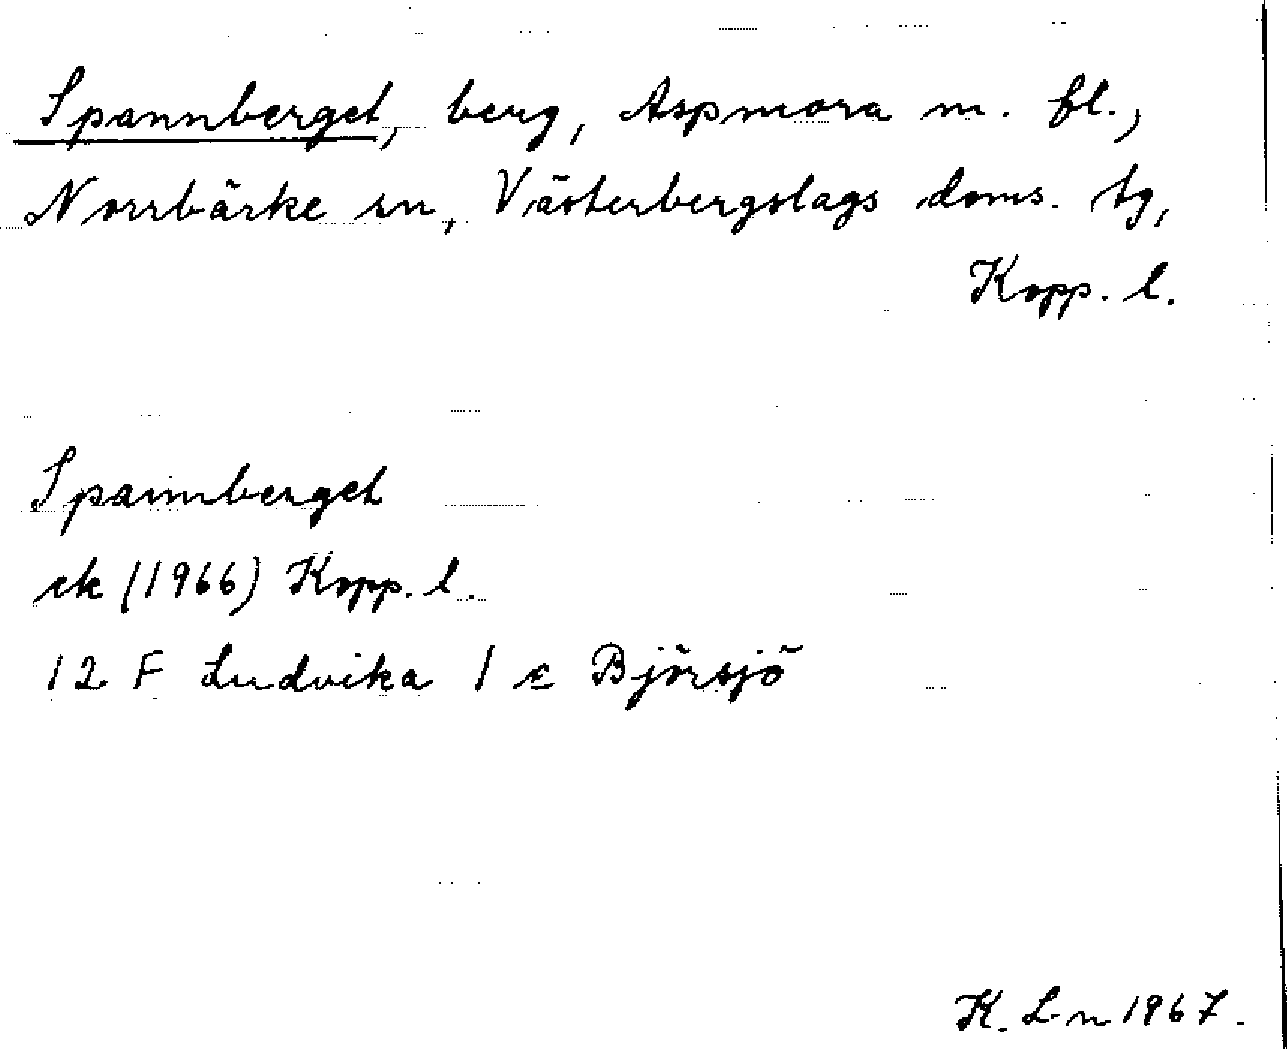 Spannberget, berg, Aspmora m. fl.,
Norrbärke sn, Västerbergslags doms. tg,
Kopp. l.
Spannberget
ek (1966) Kopp. l.
12 F Ludvika 1 c Björsjö
K. L-n 1967.